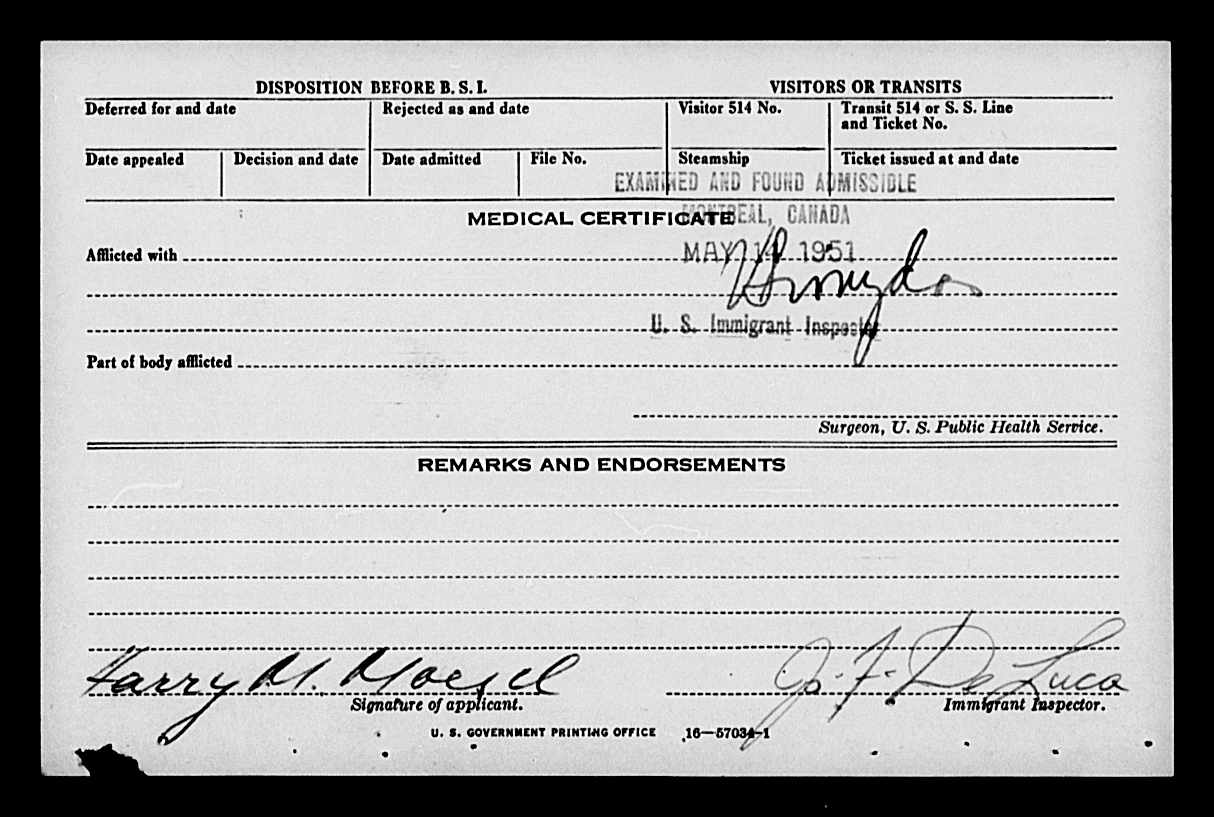 DISPOSITION BEFORE B. S. I. VISITORS OR TRANSITS
Deferred for and date Rejected as and date Visitor 514 No. Transit 514 or S. S. Line
and Ticket No.
Date appealed Decision and date Date admitted File No. Steamship Ticket issued at and date
EXAMINED AND FOUND ADMISSIBLE
MEDICAL CERTIFICATE MONTREAL, CANADA
Afflicted with MAY 14 1951
U. S. Immigrant Inspector
Part of body afflicted
Surgeon, U. S. Public Health Service.
REMARKS AND ENDORSEMENTS
Harry M. J. F. De Luca
Signature of applicant. Immigrant Inspector.
U. S. GOVERNMENT PRINTING OFFICE 16—57034-1